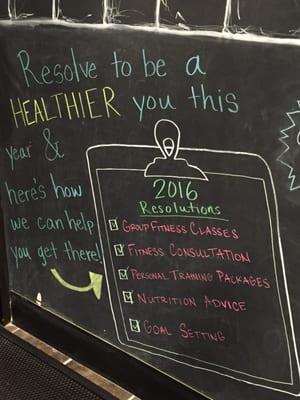 Resolve to be a
HEALTHIER you this
year &
here's how
we can help
you get there!
2016
Resolutions
GROUP FITNESS CLASSES
FITNESS CONSULTATION
PERSONAL TRAINING PACKAGES
NUTRITION ADVICE
GOAL SETTING